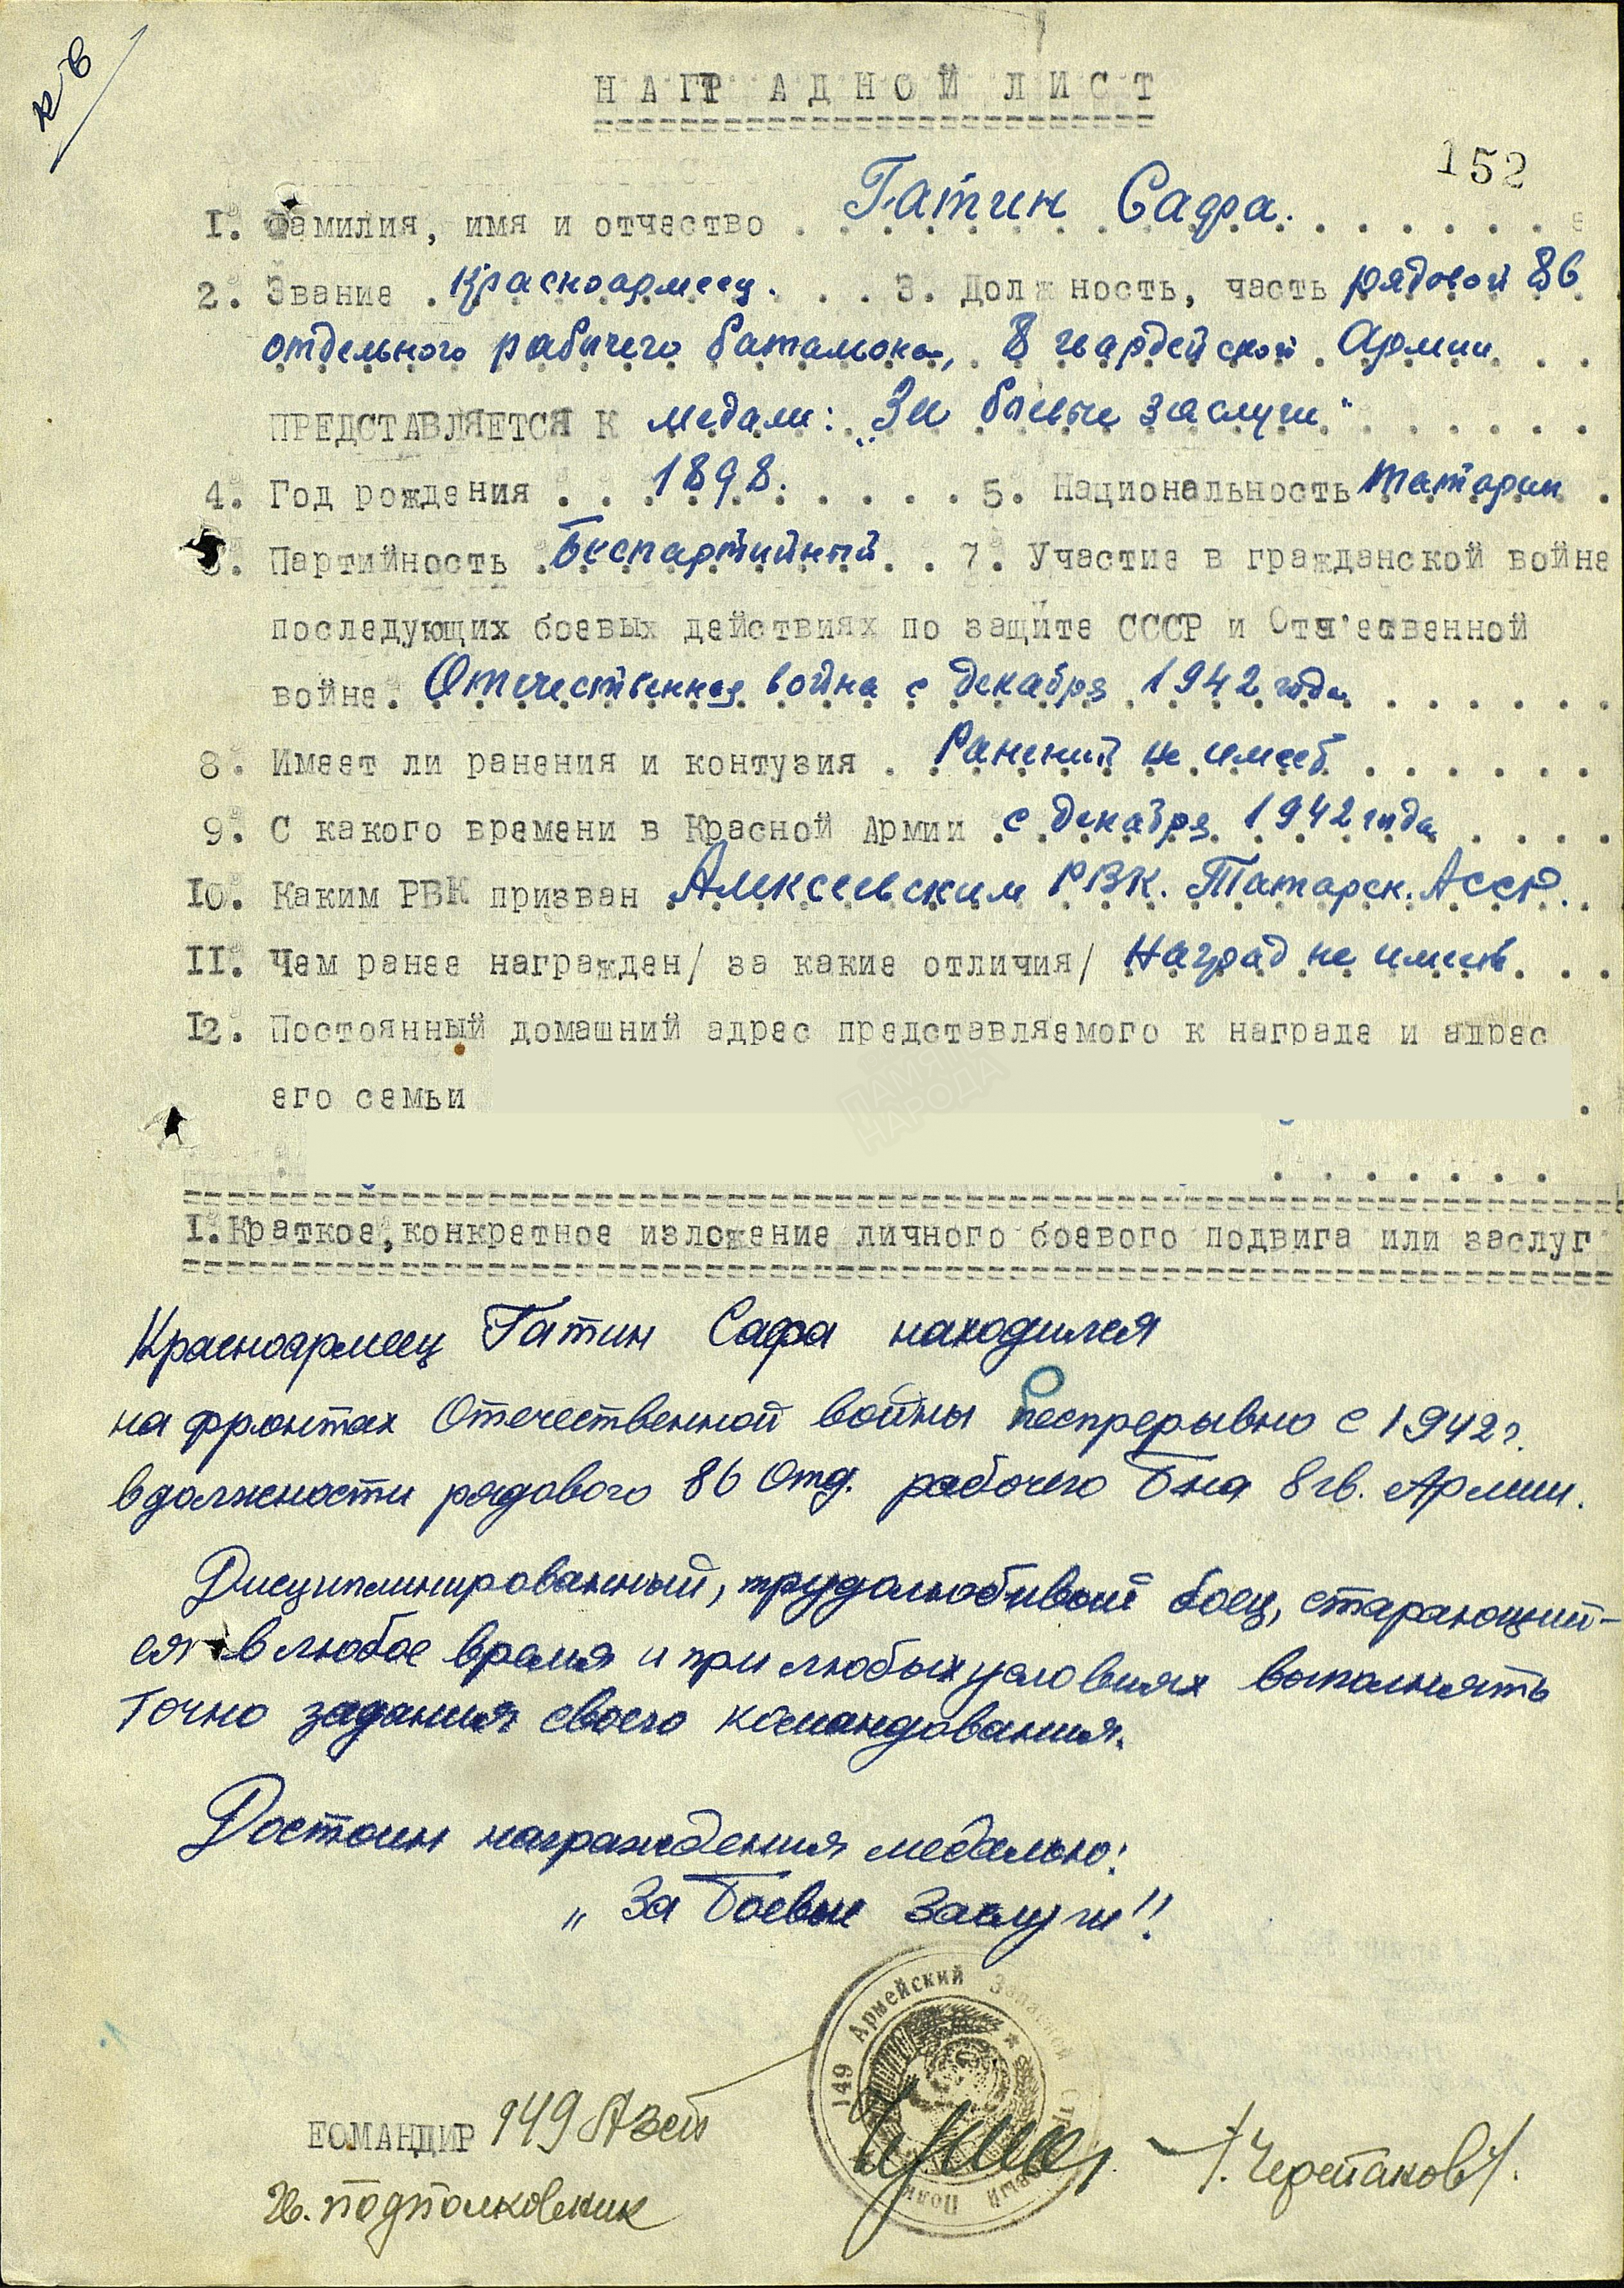 НАГРАДНОЙ ЛИСТ
152
1. Фамилия, имя и отчество Гатин Сафа.
2. Звание Красноармеец. 3. Должность, часть рядовой 86
отдельного рабочего батальона, 8 гвардейской Армии
ПРЕДСТАВЛЯЕТСЯ К медали: „За боевые заслуги"
4. Год рождения 1898. 5. Национальность татарин
6. Партийность Беспартийный 7. Участие в гражданской войне
последующих боевых действиях по защите СССР и Отечественной
войне. Отечественная война с декабря 1942 года
8. Имеет ли ранения и контузия Ранений не имеет
9. С какого времени в Красной Армии с декабря 1942 года
10. Каким РВК призван Алексеевским РВК. Татарск. АССР.
11. Чем ранее награжден/ за какие отличия/ Наград не имеет
12. Постоянный домашний адрес представляемого к награде и адрес
его семьи
ПАМЯТЬ НАРОДА
1. Краткое, конкретное изложение личного боевого подвига или заслуг
Красноармеец Гатин Сафа находился
на фронтах Отечественной войны беспрерывно с 1942 г.
в должности рядового 86 Отд. рабочего Б-на 8 гв. Армии.
Дисциплинированный, трудолюбивый боец, старающий-
ся в любое время и при любых условиях выполнять
точно задания своего командования.
Достоин награждения медалью:
„За Боевые Заслуги"!
149 Армейский Запасной Стрелковый Полк
КОМАНДИР 149 Азсп
Гв. подполковник
/. Черепаков/.